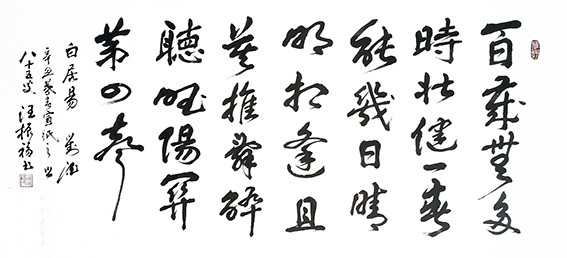 百歲無多
時壯健一春
能幾日晴
明相逢且
莫推辭醉
聽唱陽關
第四聲
白居易 對酒
辛丑
八十五叟 汪